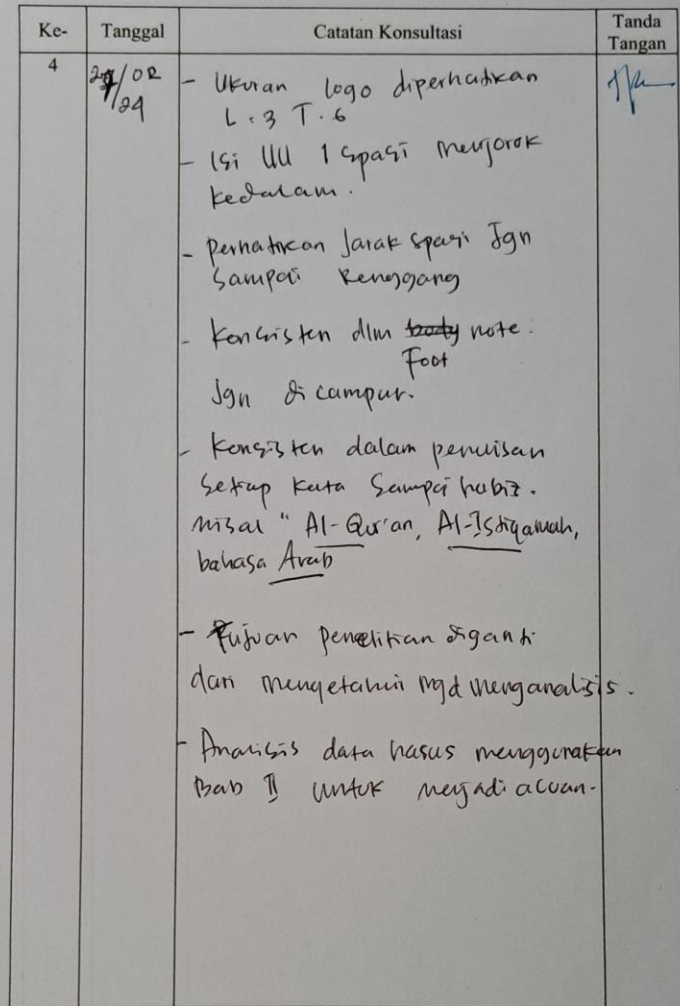 Ke- Tanggal Catatan Konsultasi Tanda Tangan
4 27/02/24 - Ukuran logo diperhatikan
L : 3 T . 6
- Isi UU 1 spasi menjorok
kedalam.
- Perhatikan Jarak spasi Jgn
Sampai Renggang
- Konsisten dlm body note.
Foot
Jgn di campur.
- Konsisten dalam penulisan
Setiap kata Sampai habis.
misal " Al-Qur'an, Al-Istiqamah,
bahasa Arab
- Tujuan penelitian diganti
dari mengetahui mjd menganalisis.
- Analisis data harus menggunakan
Bab II untuk menjadi acuan.